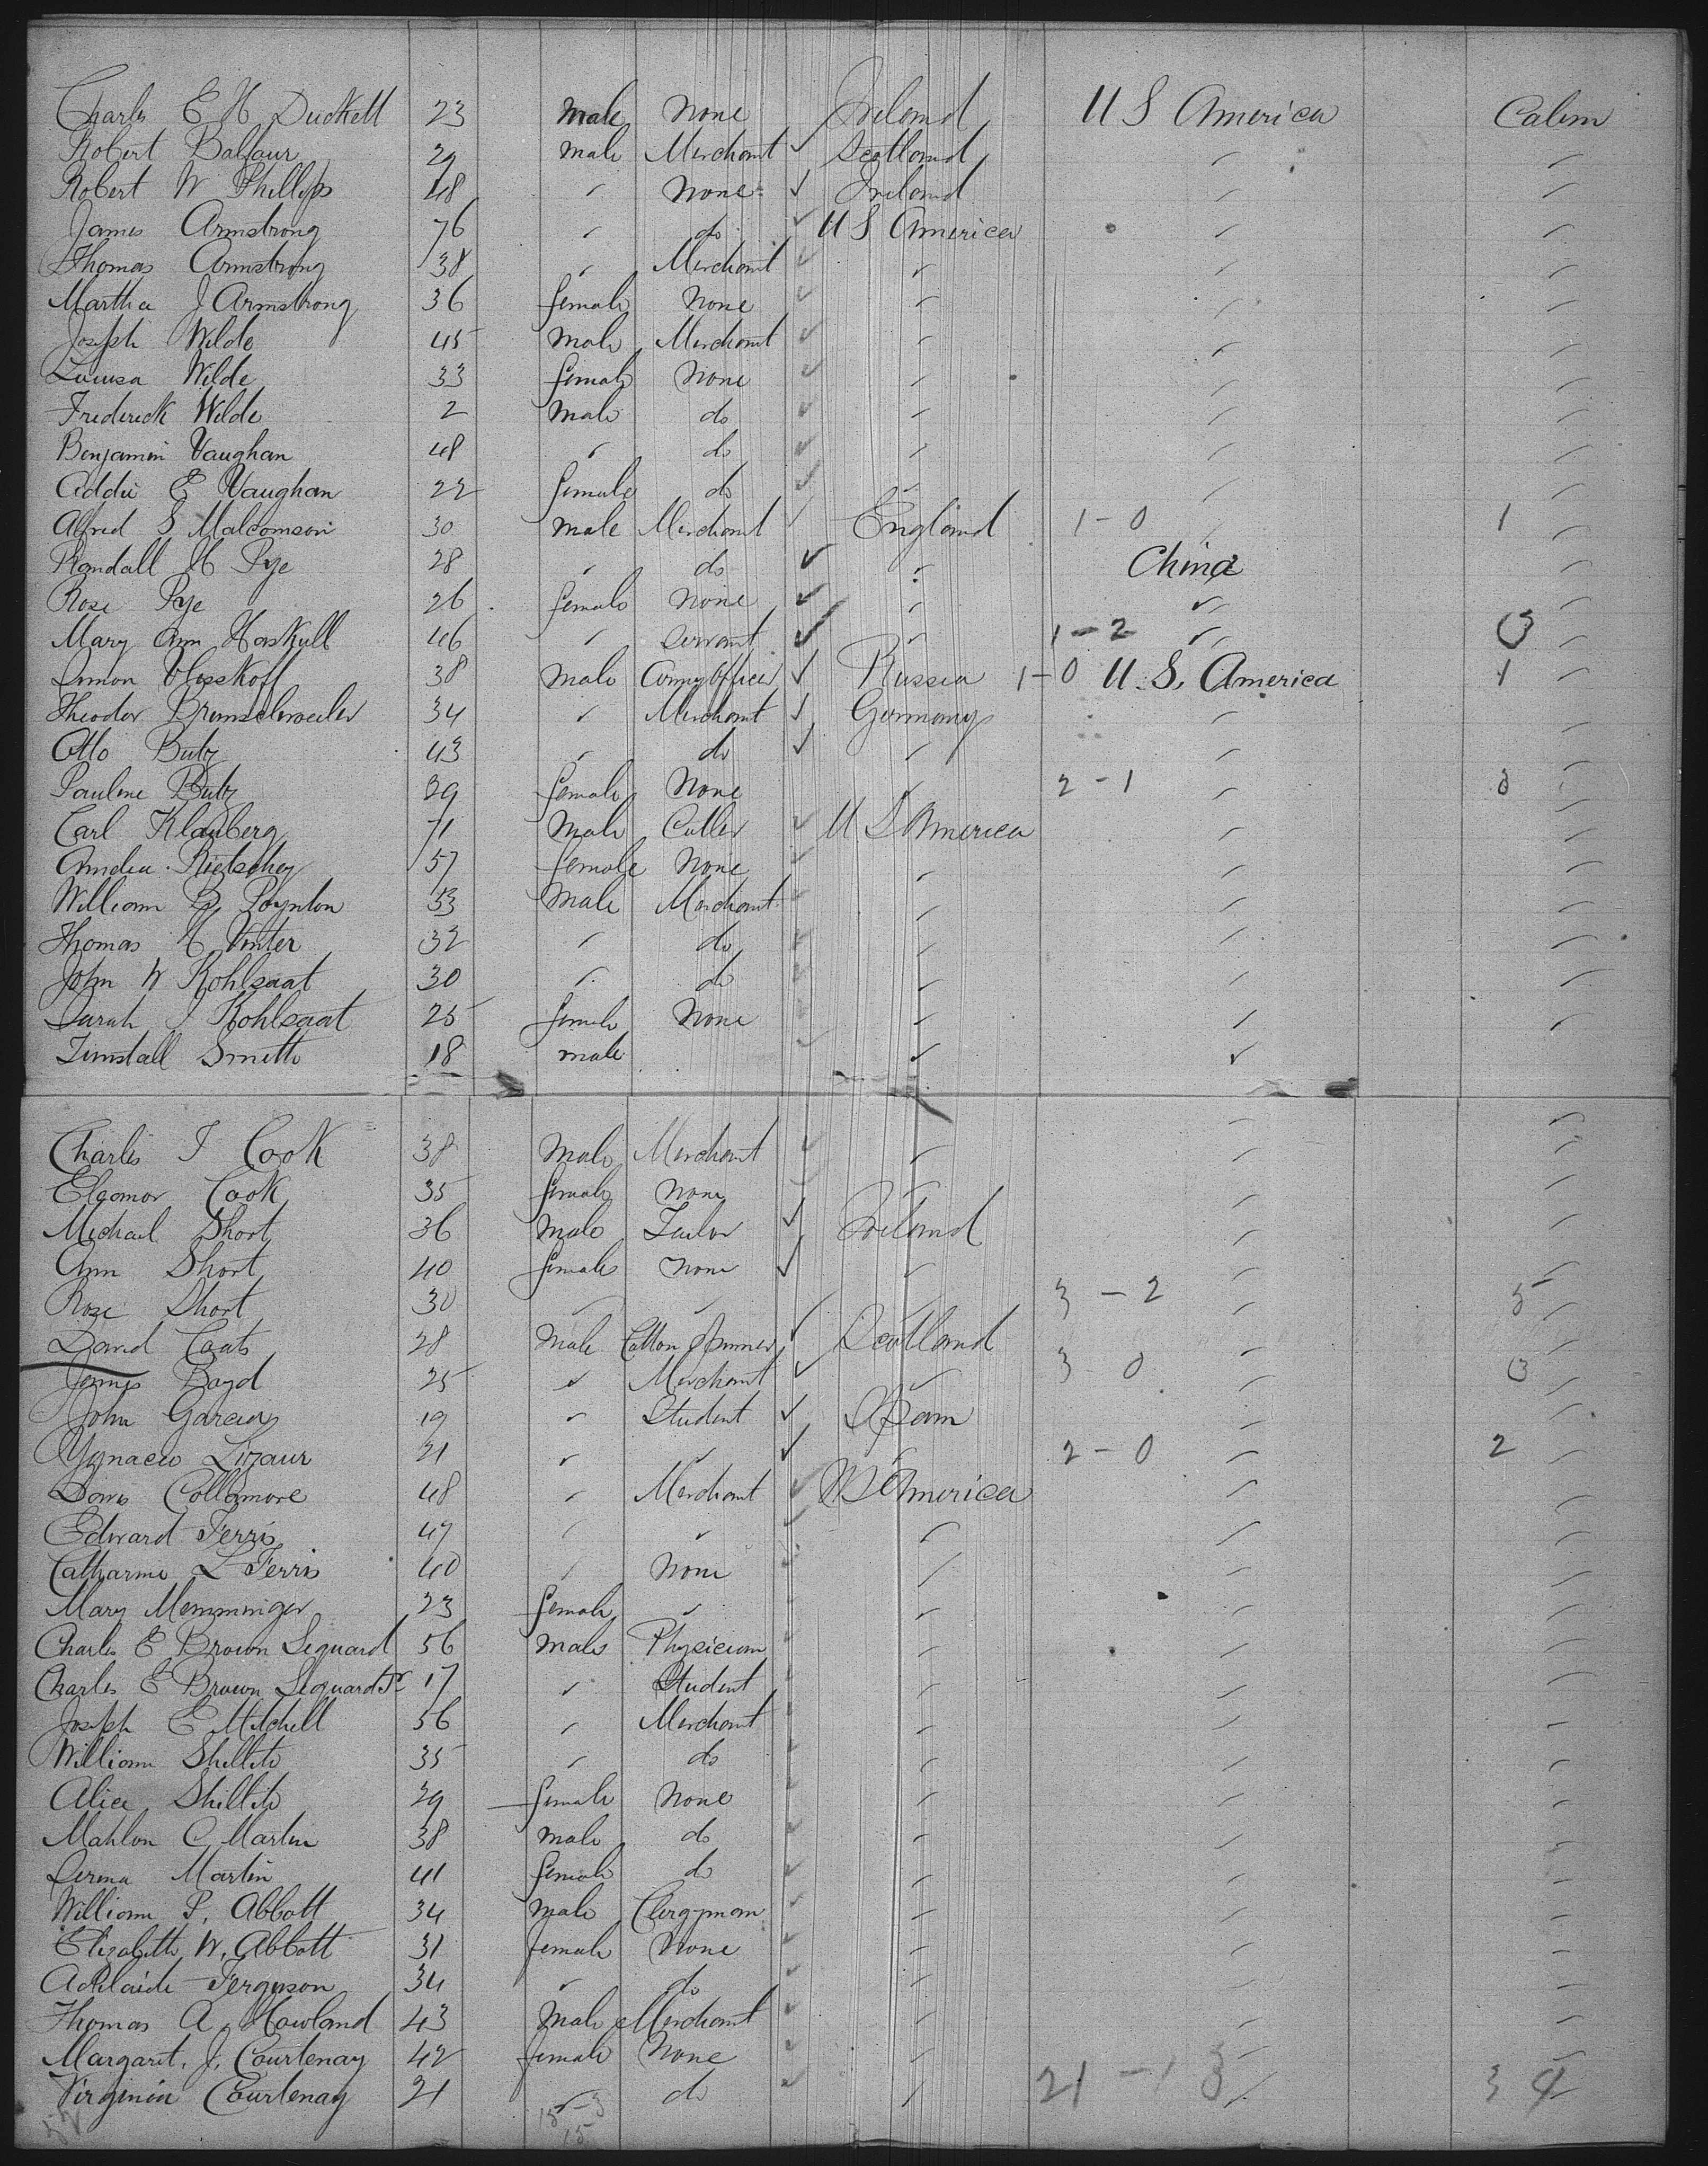 Charles E H Duckett 23 male None Ireland U S America Cabin
Robert Balfour 29 male Merchant ✓ Scotland " "
Robert W Phillips 48 " None ✓ Ireland " "
James Armstrong 76 " do ✓ U S America " "
Thomas Armstrong 38 " Merchant ✓ " " "
Martha J Armstrong 36 female None ✓ " " "
Joseph Wilde 45 Male Merchant ✓ " " "
Louisa Wilde 33 female None ✓ " " "
Frederick Wilde 2 Male do ✓ " " "
Benjamin Vaughan 48 " do ✓ " " "
Addie E Vaughan 22 female do ✓ " " "
Alfred S Malcomson 30 male Merchant ✓ England 1-0 " 1 "
Randall H Pye 28 " do ✓ " China "
Rose Pye 26 female None ✓ " " "
Mary Ann Haskull 46 " Servant ✓ " 1-2 " 3 "
Simon 38 male Army Officer ✓ Russia 1-0 U. S. America 1 "
Theodor 34 " Merchant ✓ Germany " "
Otto Butz 43 " do ✓ " " "
Pauline Butz 29 female None " 2-1 " 3 "
Carl Klauberg 71 Male Cutler ✓ U S America " "
Amelia Rietschey 57 female None ✓ " " "
William B. Poynton 53 Male Merchant ✓ " " "
Thomas H Vinter 32 " do ✓ " " "
John W Kohlsaat 30 " do ✓ " " "
Sarah J Kohlsaat 25 female None ✓ " " "
Tunstall Smith 18 male ✓ " "
Charles T Cook 38 Male Merchant ✓ " " "
Eleanor Cook 35 female None ✓ " " "
Michael Short 36 Male Tailor ✓ Ireland " "
Ann Short 40 female None ✓ " " "
Rose Short 30 " " " 3-2 " 5 "
David Coats 28 Male Cotton Spinner ✓ Scotland " "
James Boyd 25 " Merchant ✓ " 3 0 " 3 "
John Garcia 19 " Student ✓ Spain " "
Ygnacio Lizaur 21 " " ✓ " 2-0 " 2 "
Davis Collamore 48 " Merchant ✓ U S America " "
Edward Ferris 47 " " ✓ " " "
Catharine L Ferris 40 " None ✓ " " "
Mary Memminger 23 female " ✓ " " "
Charles E Brown Sequard 56 male Physician ✓ " " "
Charles E Brown Sequard Jr 17 " Student ✓ " " "
Joseph E Mitchell 56 " Merchant ✓ " " "
William Shillito 35 " do ✓ " " "
Alice Shillito 29 female None ✓ " " "
Mahlon C Martin 38 Male do ✓ " " "
Serena Martin 41 female do ✓ " " "
William P. Abbott 34 Male Clergyman ✓ " " "
Elizabeth W. Abbott 31 female None ✓ " " "
Adelaide Ferguson 34 " do ✓ " " "
Thomas A. Howland 43 Male Merchant ✓ " " "
Margaret. J. Courtenay 42 female None ✓ " " "
Virginia Courtenay 21 " do ✓ " 21-13 " 34 "
52 15-3
15